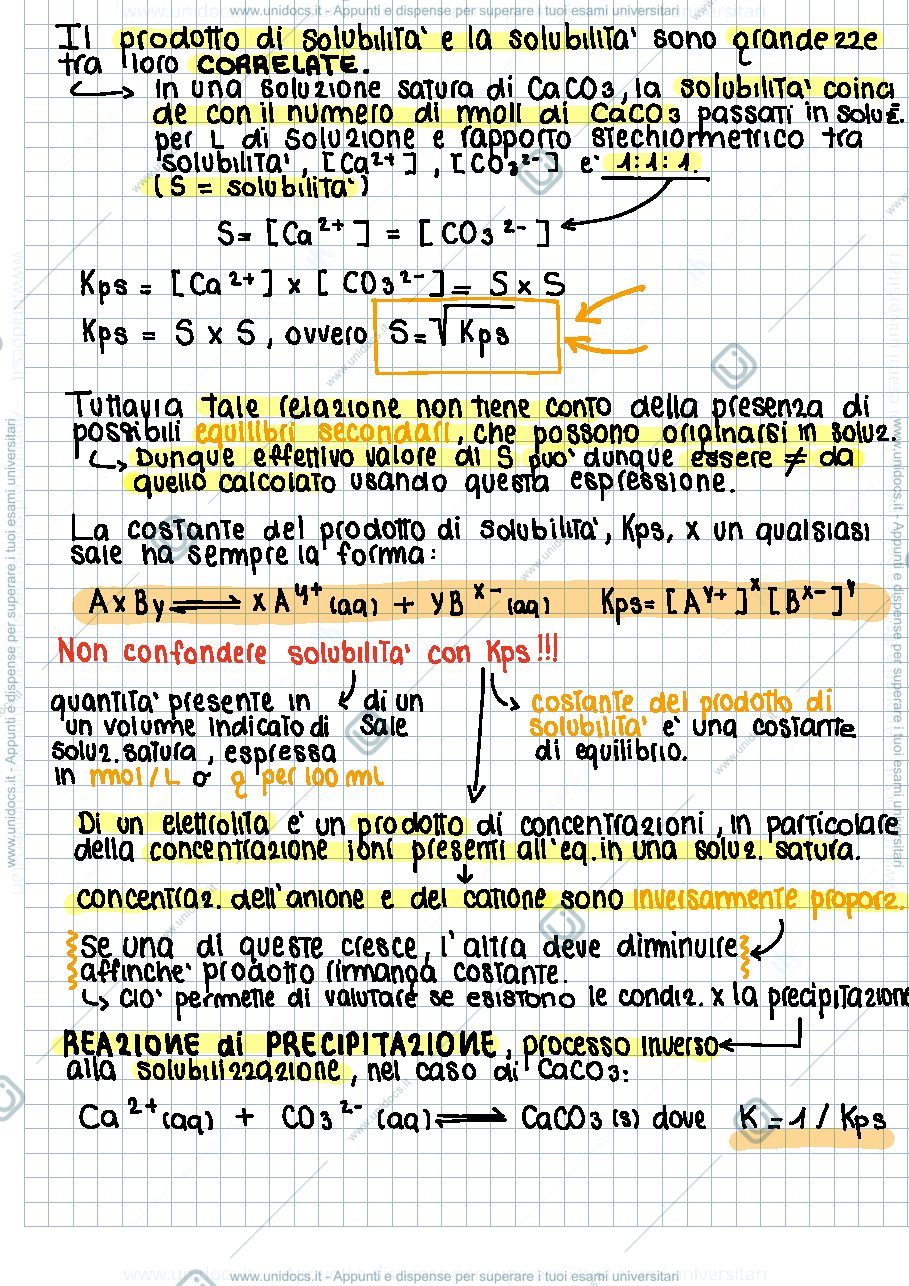 www.unidocs.it - Appunti e dispense per superare i tuoi esami universitari
Il prodotto di solubilità e la solubilità sono grandezze
tra loro CORRELATE.
↳ In una soluzione satura di CaCO3, la solubilità coinci
de con il nummero di mmoli di CaCO3 passati in soluz.
per L di soluzione e rapporto stechiormetrico tra
solubilità, [Ca²⁺], [CO₃²⁻] è 1:1:1.
(S = solubilità)
S = [Ca²⁺] = [CO3²⁻]
Kps = [Ca²⁺] x [CO3²⁻] = S x S
Kps = S x S, ovvero S=√Kps
Tuttavia tale relazione non tiene conto della presenza di
possibili equilibri secondari, che possono originarsi in soluz.
↳ Dunque effettivo valore di S può dunque essere ≠ da
quello calcolato usando questa espressione.
La costante del prodotto di solubilità, Kps, x un qualsiasi
sale ha sempre la forma:
AxBy ⇌ xAʸ⁺(aq) + yBˣ⁻(aq) Kps=[Aʸ⁺]ˣ[Bˣ⁻]ʸ
Non confondere solubilità con Kps!!!
quantità presente in ↙ di un
un volumme indicato di sale
soluz. satura, espressa
in mmol/L o g per 100 mL
↳ costante del prodotto di
solubilità è una costante
di equilibrio.
Di un elettrolita è un prodotto di concentrazioni, in particolare
della concentrazione ioni presenti all'eq. in una soluz. satura.
↓
concentraz. dell'anione e del catione sono inversarmente proporz.
Se una di queste cresce, l'altra deve dirminuire
affinché prodotto rirmanga costante.
↳ ciò permette di valutare se esistono le condiz. x la precipitazione
REAZIONE di PRECIPITAZIONE, processo inverso
alla solubilizzazione, nel caso di CaCO3:
Ca²⁺(aq) + CO3²⁻(aq) ⇌ CaCO3(s) dove K=1/Kps
www.unidocs.it - Appunti e dispense per superare i tuoi esami universitari